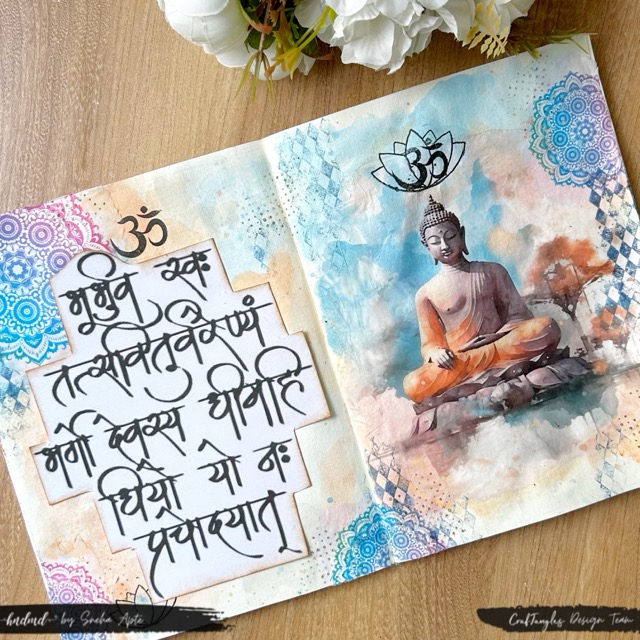 ॐ
भूर्भुव स्वः
तत्सवितुर्वरेण्यं
भर्गो देवस्य धीमहि
धियो यो नः
प्रचोदयात्
ॐ
-hndmd- by Sneha Apte
CrafTangles Design Team